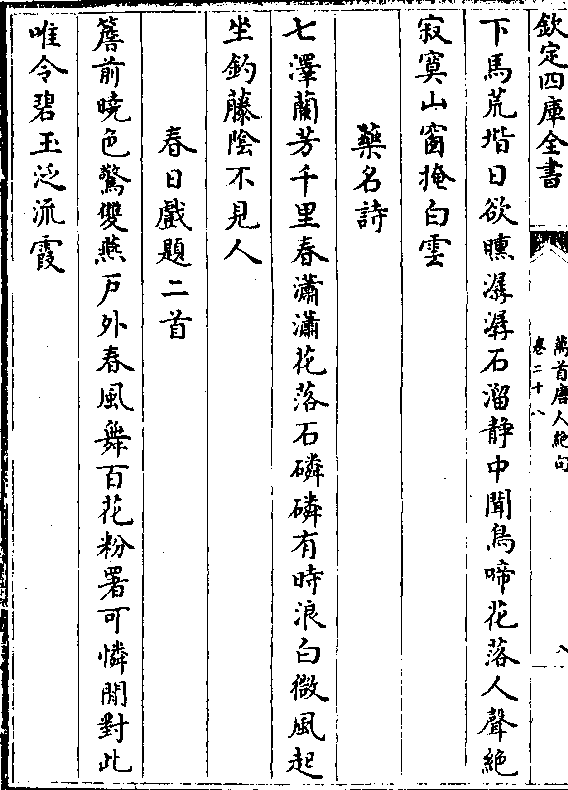 欽定四庫全書
萬首唐人絶句
卷二十八
八
下馬荒堦日欲曛潺潺石溜靜中聞鳥啼花落人聲絶
寂寞山窗掩白雲
藥名詩
七澤蘭芳千里春瀟瀟花落石磷磷有時浪白微風起
坐釣藤隂不見人
春日戲題二首
簷前曉色驚雙燕戸外春風舞百花粉署可憐閒對此
唯令碧玉泛流霞